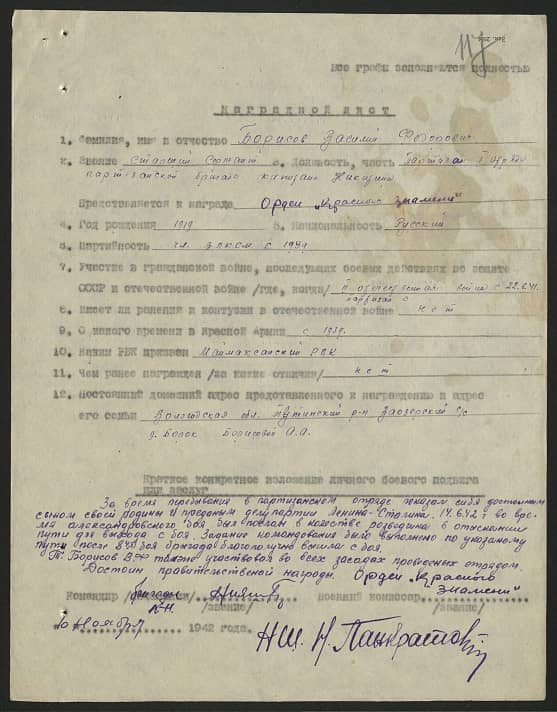 117
Все графы заполняются полностью
Наградной лист
1. Фамилия, имя и отчество Борисов Василий Федорович
2. Звание старший сержант 3. Должность, часть партизан 1 отряда
партизанской бригады капитана
Представляется к награде Орден "Красного знамени"
4. Год рождения 1919 5. Национальность Русский
6. Партийность чл. ВЛКСМ с
7. Участие в гражданской войне, последующих боевых действиях по защите
СССР и отечественной войне /где, когда/ В отечественной войне с 22.6.41.
партизан с
8. Имеет ли ранения и контузии в отечественной войне нет
9. С какого времени в Красной Армии с 1939.
10. Каким РВК призван Маймаксанский РВК
11. Чем ранее награжден /за какие отличия/ нет
12. Постоянный домашний адрес представленного к награждению и адрес
его семьи Вологодская обл. р-н Заозерский с/с
д. Борок Борисовой А.А.
Краткое конкретное изложение личного боевого подвига
или заслуг
За время пребывания в партизанском отряде показал себя достойным
сыном своей родины и преданым делу партии Ленина-Сталина. 14.6.42 г во вре-
мя александровского боя, был послан в качестве разведчика в отыскании
пути для выхода с боя. Задание командования было выполнено по указаному
пути после боя бригада благополучно вышла с боя.
Т. Борисов В.Ф также участвовал во всех засадах проводеных отрядом.
Достоин правительственой награды. Орден "Красного
знамени"
Командир бригады /звание/ Военный комиссар /звание/
К-н
" ноября 1942 года.
НШ К Панкратов